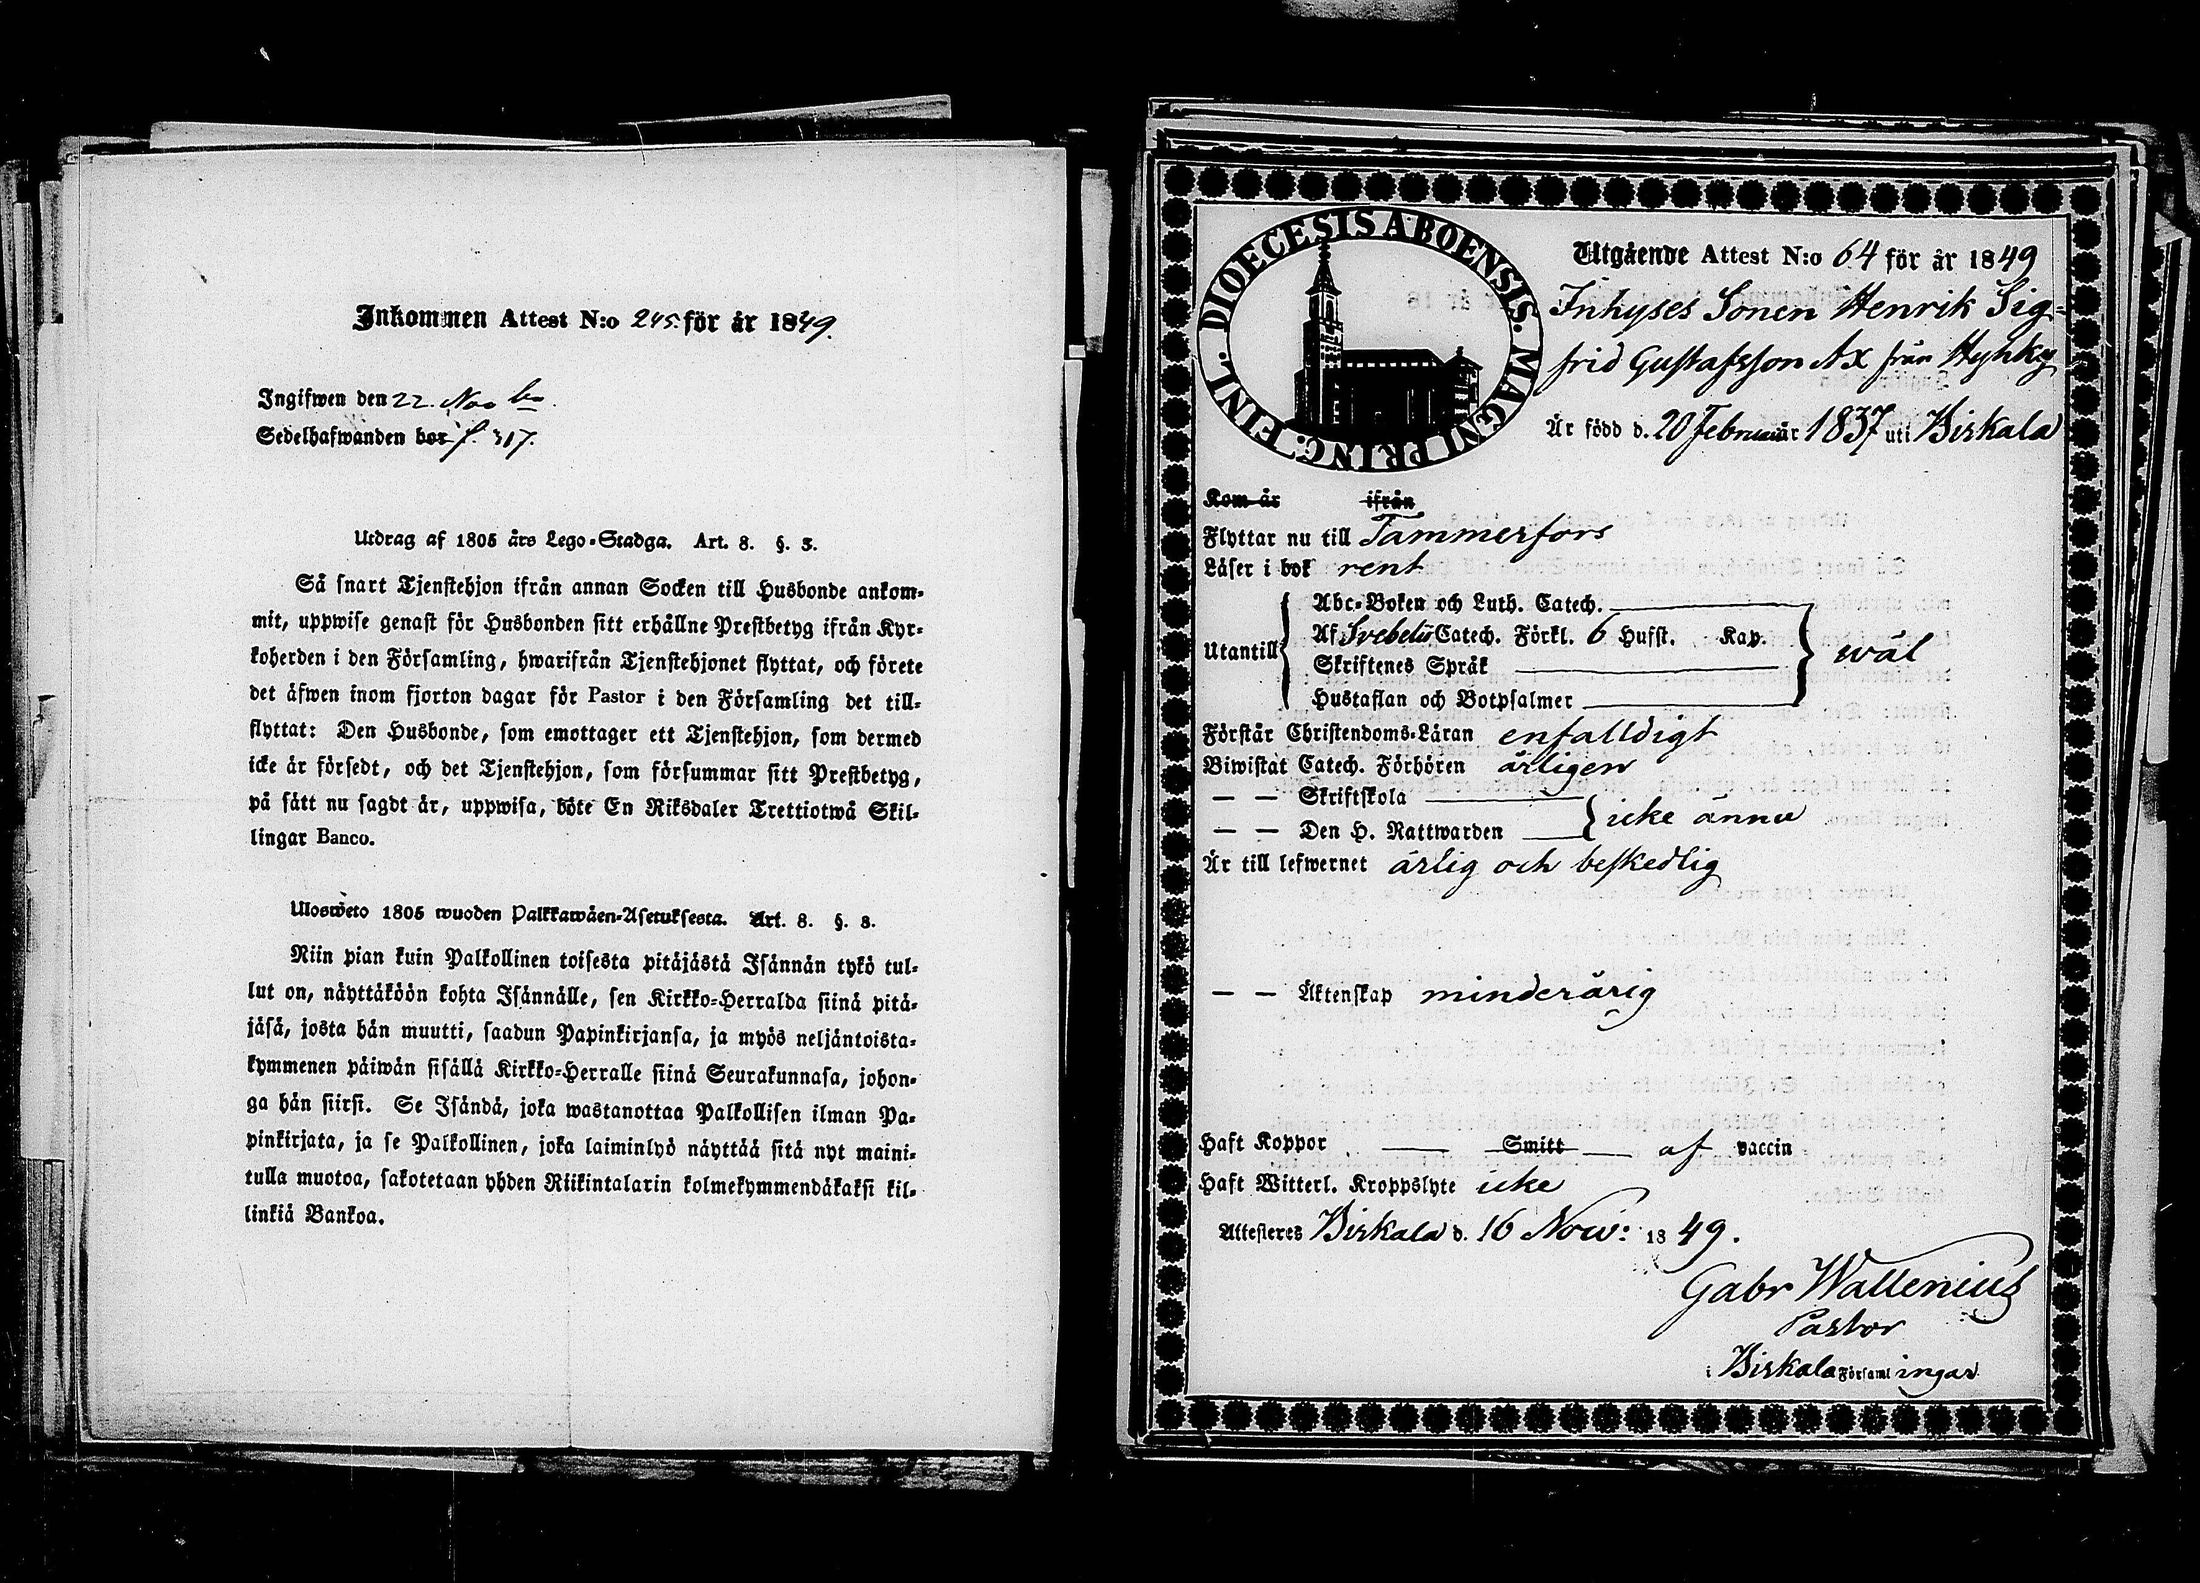 Inkommen Attest N:o 245. för år 1849.
Ingifwen den 22. Nov br.
Sedelhafwanden bor f. 317.
Utdrag af 1805 års Lego-Stadga. Art. 8. §. 3.
Så snart Tjenstehjon ifrån annan Socken till Husbonde ankom-
mit, uppwise genast för Husbonden sitt erhållne Prestbetyg ifrån Kyr-
koherden i den Församling, hwarifrån Tjenstehjonet flyttat, och förete
det äfwen inom fjorton dagar för Pastor i den Församling det till-
flyttat: Den Husbonde, som emottager ett Tjenstehjon, som dermed
icke är försedt, och det Tjenstehjon, som försummar sitt Prestbetyg,
på sätt nu sagdt är, uppwisa, böte En Riksdaler Trettiotwå Skil-
lingar Banco.
Ulosweto 1805 wuoden Palkkawäen-Asetuksesta. Art. 8. §. 3.
Niin pian kuin Palkollinen toisesta pitäjästä Isännän tykö tul-
lut on, näyttäköön kohta Isännälle, sen Kirkko-Herralda siinä pitä-
jäsä, josta hän muutti, saadun Papinkirjansa, ja myös neljäntoista-
kymmenen päiwän sisällä Kirkko-Herralle siinä Seurakunnasa, johon-
ga hän siirsi. Se Isändä, joka wastanottaa Palkollisen ilman Pa-
pinkirjata, ja se Palkollinen, joka laiminlyö näyttää sitä nyt maini-
tulla muotoa, sakotetaan yhden Riikintalarin kolmekymmendäkaksi kil-
linkiä Bankoa.
DIOECESIS ABOENSIS. MAGNI PRINC. FINL.
Utgående Attest N:o 64 för år 1849
Inhyses Sonen Henrik Sig-
frid Gustafsson Ax från Hyhky
Är född d. 20 Februari år 1837 uti Birkala
Kom år ifrån
Flyttar nu till Tammerfors
Läser i bok rent
Utantill
Abc-Boken och Luth. Catech.
Af Svebelii Catech. Förkl. 6 Hufst. Kap.
Skriftenes Språk
Hustaflan och Botpsalmer
wäl
Förstår Christendoms-Läran enfalldigt
Biwistat Catech. Förhören årligen
— — Skriftskola
— — Den H. Nattwarden
icke ännu
Är till lefwernet ärlig och beskedlig
— — Äktenskap minderårig
Haft Koppor — Smitt — af vaccin
Haft Witterl. Kroppslyte icke
Attesteres Birkala d. 16 Nov: 1849.
Gabr Wallenius
Pastor
i Birkala Församlingar